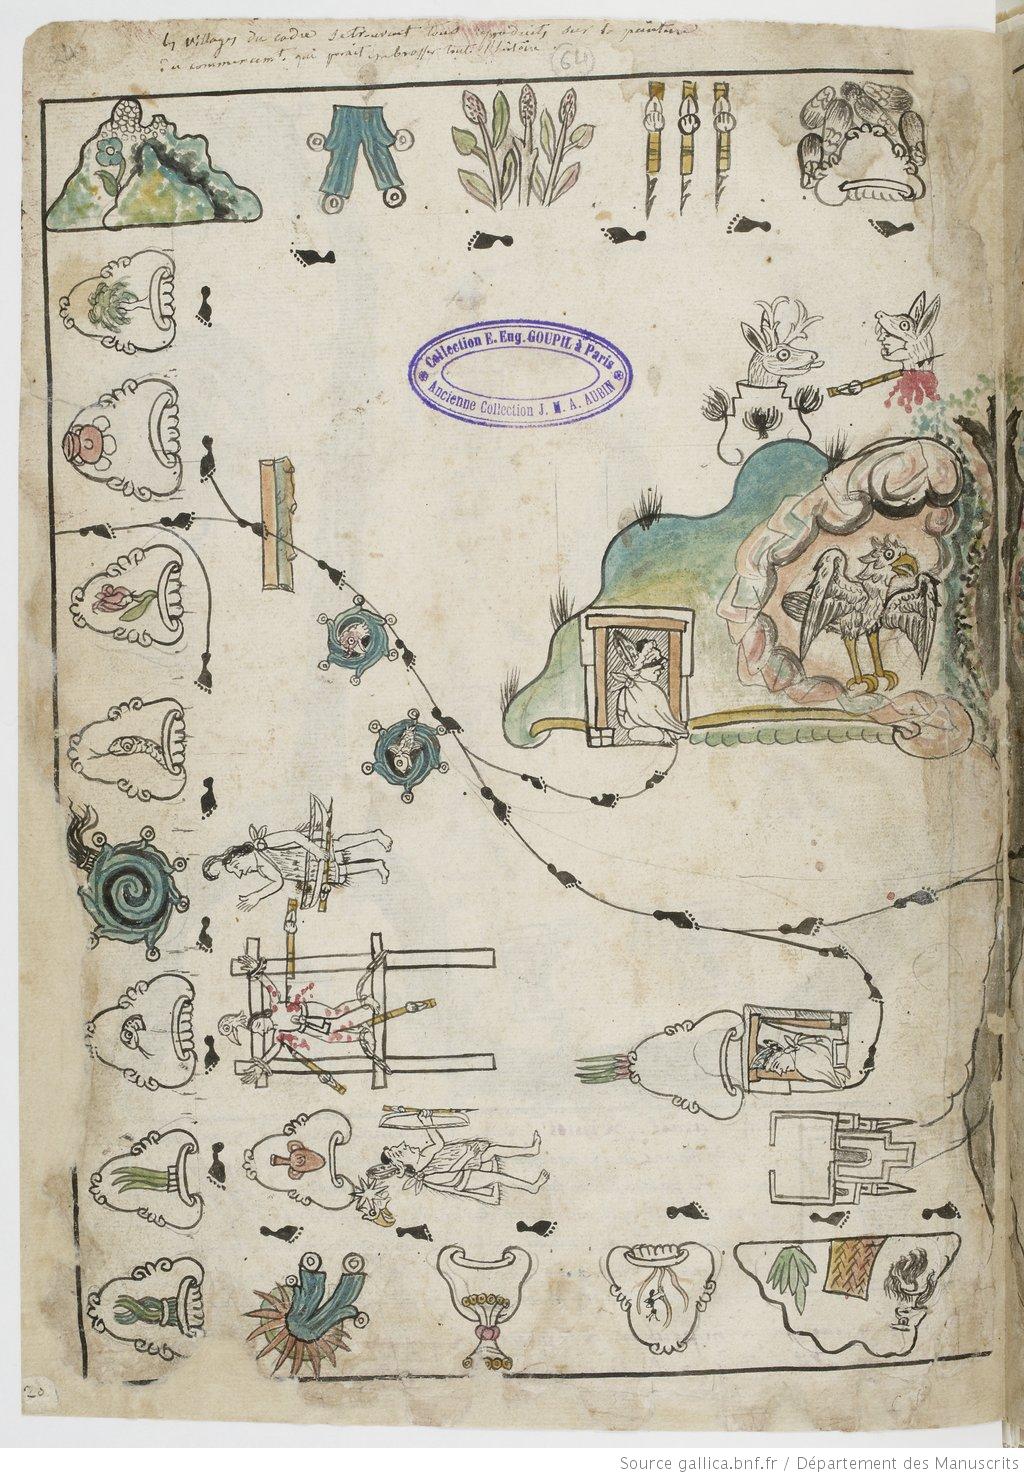 les villages du cadre se trouvent tous reproduits sur la peinture
du commencement, qui parait embrasser toute l'histoire
(64)
Collection E. Eug. GOUPIL à Paris
Ancienne Collection J. M. A. AUBIN
20
Source gallica.bnf.fr / Département des Manuscrits